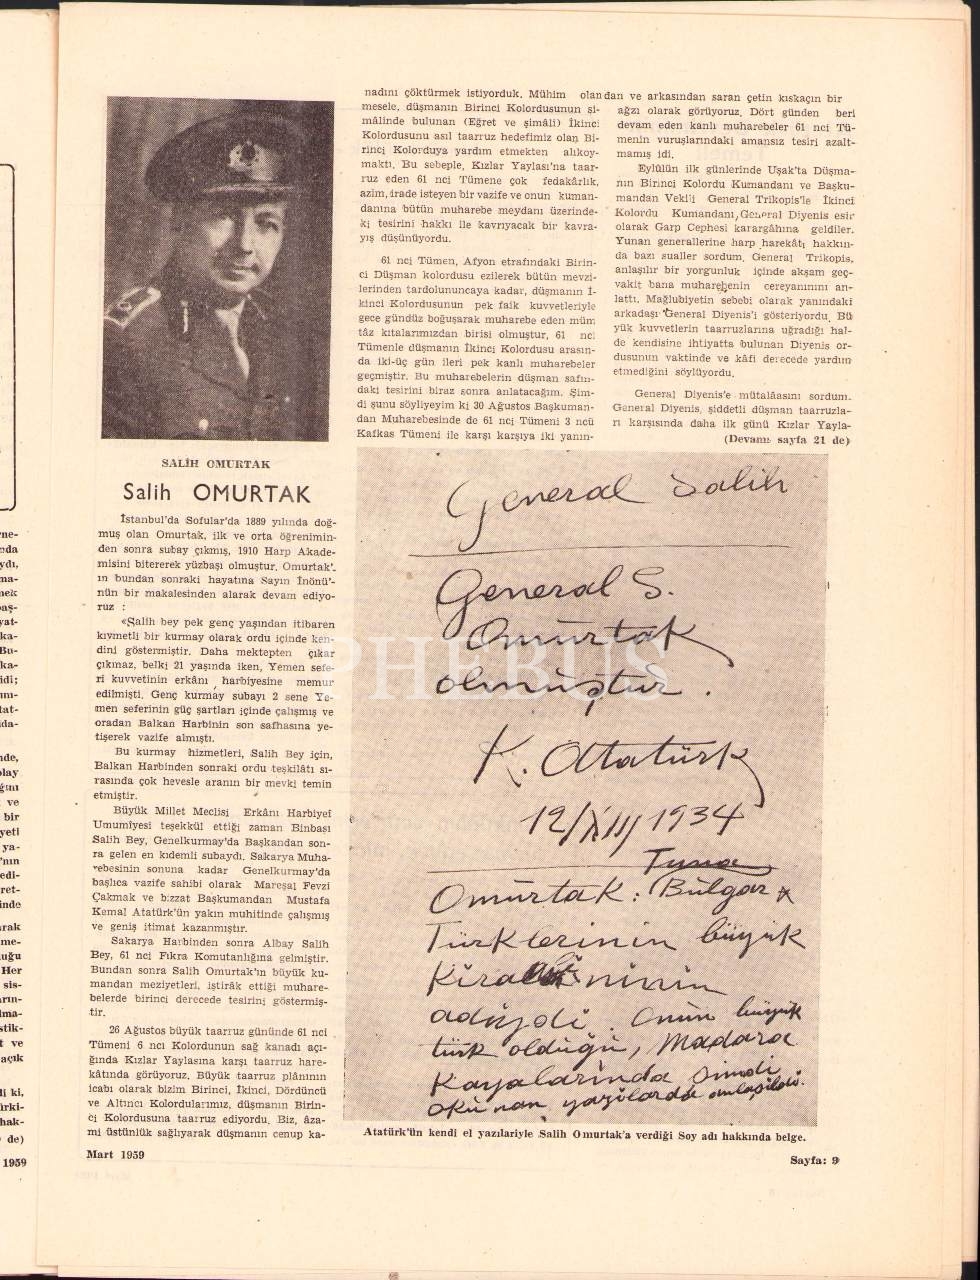 SALİH OMURTAK
Salih OMURTAK
İstanbul'da Sofular'da 1889 yılında doğ-
muş olan Omurtak, ilk ve orta öğrenimin-
den sonra subay çıkmış, 1910 Harp Akade-
misini bitererek yüzbaşı olmuştur. Omurtak'-
ın bundan sonraki hayatına Sayın İnönü'-
nün bir makalesinden alarak devam ediyo-
ruz :
«Salih bey pek genç yaşından itibaren
kıymetli bir kurmay olarak ordu içinde ken-
dini göstermiştir. Daha mektepten çıkar
çıkmaz, belki 21 yaşında iken, Yemen sefe-
ri kuvvetinin erkânı harbiyesine memur
edilmişti. Genç kurmay subayı 2 sene Ye-
men seferinin güç şartları içinde çalışmış ve
oradan Balkan Harbinin son safhasına ye-
tişerek vazife almıştı.
Bu kurmay hizmetleri, Salih Bey için,
Balkan Harbinden sonraki ordu teşkilâtı sı-
rasında çok hevesle aranın bir mevki temin
etmiştir.
Büyük Millet Meclisi Erkânı Harbiyei
Umumîyesi teşekkül ettiği zaman Binbaşı
Salih Bey, Genelkurmay'da Başkandan son-
ra gelen en kıdemli subaydı. Sakarya Muha-
rebesinin sonuna kadar Genelkurmay'da
başlıca vazife sahibi olarak Mareşal Fevzi
Çakmak ve bizzat Başkumandan Mustafa
Kemal Atatürk'ün yakın muhitinde çalışmış
ve geniş itimat kazanmıştır.
Sakarya Harbinden sonra Albay Salih
Bey, 61 nci Fıkra Komutanlığına gelmiştir.
Bundan sonra Salih Omurtak'ın büyük ku-
mandan meziyetleri, iştirâk ettiği muhare-
belerde birinci derecede tesirini göstermiş-
tir.
26 Ağustos büyük taarruz gününde 61 nci
Tümeni 6 ncı Kolordunun sağ kanadı açı-
ğında Kızlar Yaylasına karşı taarruz hare-
kâtında görüyoruz. Büyük taarruz plânının
icabı olarak bizim Birinci, İkinci, Dördüncü
ve Altıncı Kolordularımız, düşmanın Birin-
ci Kolordusuna taarruz ediyordu. Biz, âza-
mi üstünlük sağlıyarak düşmanın cenup ka-
nadını çöktürmek istiyorduk. Mühim olan
mesele, düşmanın Birinci Kolordusunun şi-
mâlinde bulunan (Eğret ve şimâli) İkinci
Kolordusunu asıl taarruz hedefimiz olan Bi-
rinci Kolorduya yardım etmekten alıkoy-
maktı. Bu sebeple, Kızlar Yaylası'na taar-
ruz eden 61 nci Tümene çok fedakârlık,
azim, irade isteyen bir vazife ve onun kuman-
danına bütün muharebe meydanı üzerinde-
ki tesirini hakkı ile kavrıyacak bir kavra-
yış düşünüyordu.
61 nci Tümen, Afyon etrafındaki Birin-
ci Düşman kolordusu ezilerek bütün mevzi-
lerinden tardolununcaya kadar, düşmanın İ-
kinci Kolordusunun pek faik kuvvetleriyle
gece gündüz boğuşarak muharebe eden müm
tâz kıtalarımızdan birisi olmuştur. 61 nci
Tümenle düşmanın İkinci Kolordusu arasın-
da iki-üç gün ileri pek kanlı muharebeler
geçmiştir. Bu muharebelerin düşman safın-
daki tesirini biraz sonra anlatacağım. Şim-
di şunu söyliyeyim ki 30 Ağustos Başkuman-
dan Muharebesinde de 61 nci Tümeni 3 ncü
Kafkas Tümeni ile karşı karşıya iki yanın-
dan ve arkasından saran çetin kıskaçın bir
ağzı olarak görüyoruz. Dört günden beri
devam eden kanlı muharebeler 61 nci Tü-
menin vuruşlarındaki amansız tesiri azalt-
mamış idi.
Eylülün ilk günlerinde Uşak'ta Düşma-
nın Birinci Kolordu Kumandanı ve Başku-
mandan Vekili General Trikopis'le İkinci
Kolordu Kumandanı, General Diyenis esir
olarak Garp Cephesi karargâhına geldiler.
Yunan generallerine harp harekâtı hakkın-
da bazı sualler sordum. General Trikopis,
anlaşılır bir yorgunluk içinde akşam geç-
vakit bana muharebenin cereyanımını an-
lattı. Mağlubiyetin sebebi olarak yanındaki
arkadaşı General Diyenis'i gösteriyordu. Bü
yük kuvvetlerin taarruzlarına uğradığı hal-
de kendisine ihtiyatta bulunan Diyenis or-
dusunun vaktinde ve kâfi derecede yardım
etmediğini söylüyordu.
General Diyenis'e mütalâasını sordum.
General Diyenis, şiddetli düşman taarruzla-
rı karşısında daha ilk günü Kızlar Yayla-
(Devamı sayfa 21 de)
General Salih
General S.
Omurtak
olmuştur.
K. Atatürk
12/XII/1934
Tuna
Omurtak: Bulgar
Türklerinin büyük
Kıralının
adıydı. Onun büyük
türk olduğu, Madara
Kayalarında şimdi
okunan yazılarda anlaşıldı.
Atatürk'ün kendi el yazılariyle Salih Omurtak'a verdiği Soy adı hakkında belge.
Mart 1959
Sayfa: 9
PHEBUS
1959